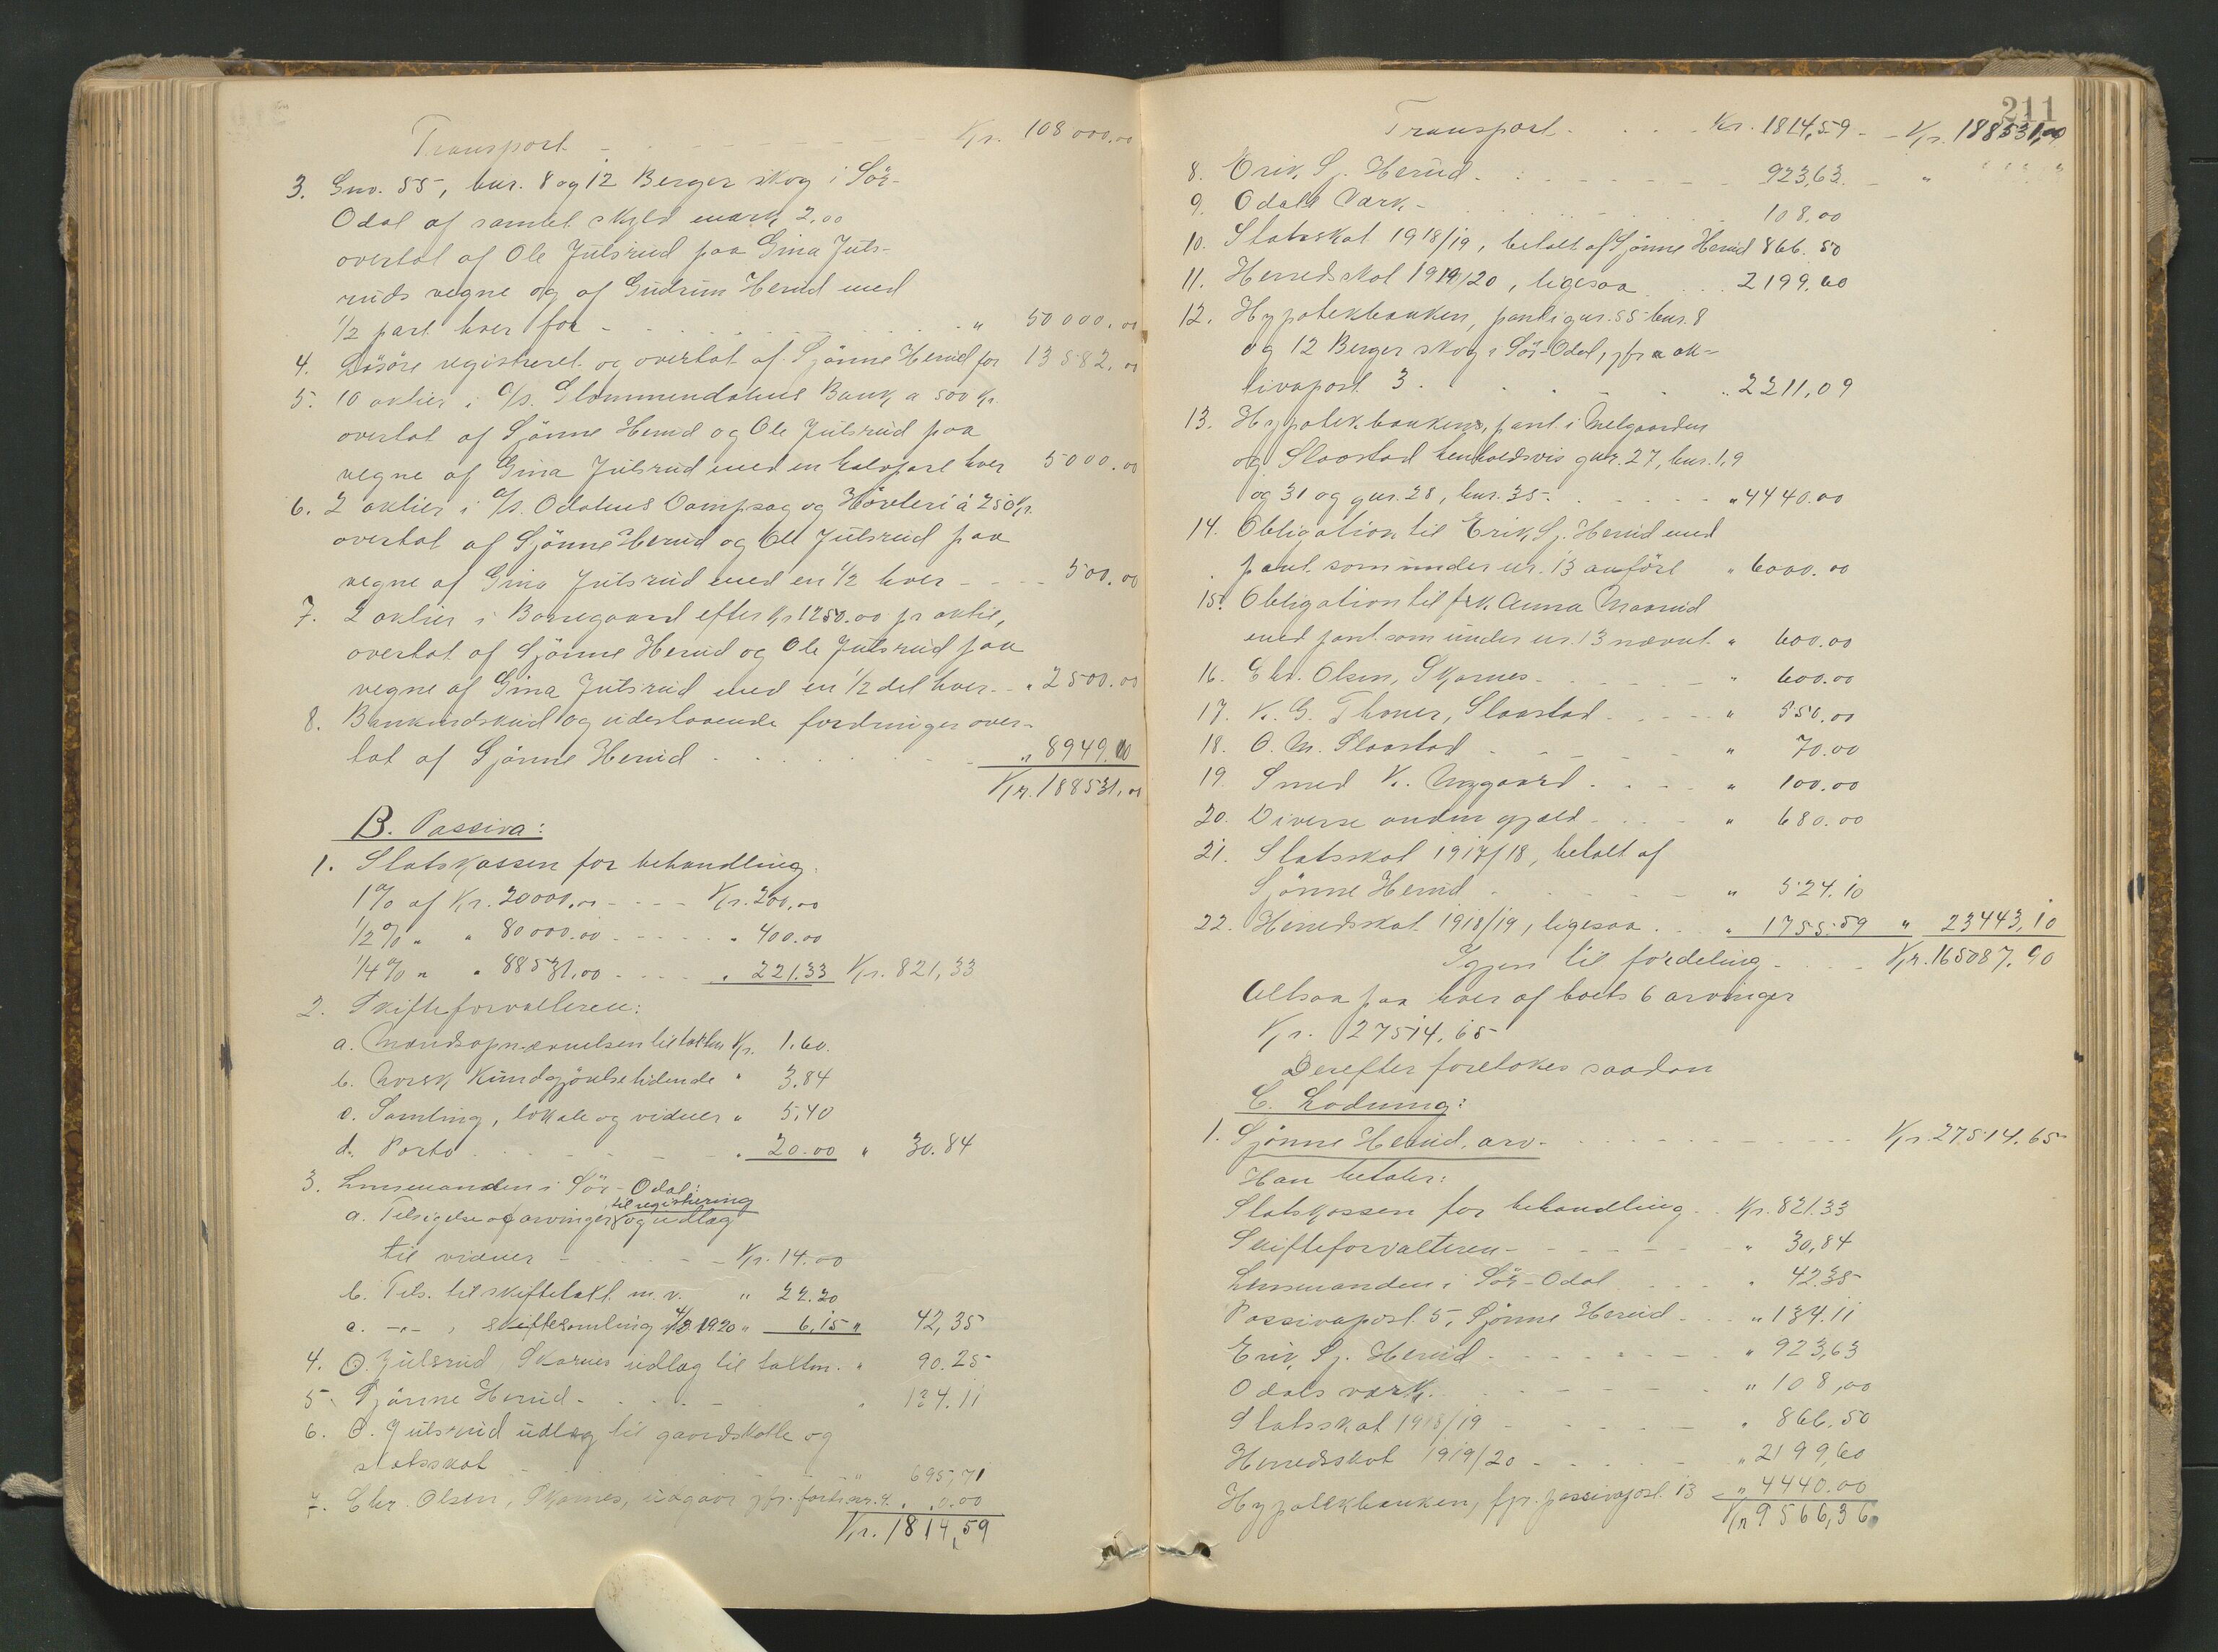 Transport - - - - - - Kr. 108 000.00
3. Gno. 55, bnr. 8 og 12 Berger skog i Sör-
Odal af samlet skyld mark 2.00
overtat af Ole Julsrud paa Gina Juls-
ruds vegne og af Gudrun Herud med
1/2 part hver for - - - - - " 50 000.00
4. Lösöre registreret og overtat af Sjönne Herud for 13 582.00
5. 10 aktier i A/S. Glommendalens Bank a 500 kr.
overtat af Sjönne Herud og Ole Julsrud paa
vegne af Gina Julsrud med en halvpart hver 5000.00
6. 2 aktier i A/S. Odalens Dampsag og Hövleri á 250 kr.
overtat af Sjönne Herud og Ole Julsrud paa
vegne af Gina Julsrud med en 1/2 hver - - - 500.00
7. 2 aktier i Borregaard efter Kr 1250.00 pr aktie,
overtat af Sjönne Herud og Ole Julsrud paa
vegne af Gina Julsrud med en 1/2 del hver - - " 2500.00
8. Bankindskud og udestaaende fordringer over-
tat af Sjönne Herud - - - - - " 8949.00
Kr. 188531.00
B. Passiva:
1. Statskassen for behandling.
1% af Kr. 20000.00 - - - Kr. 200.00
1/2% " " 80000.00 - - - " 400.00
1/4% " " 88531.00 - - - " 221.33 Kr. 821,33
2. Skifteforvalteren:
a. Mandsopnævnelsen til taksten Kr. 1.60.
b. Norsk Kundgjörelsetidende " 3.84
c. Samling, lokale og vidner " 5.40
d. Porto - - - - " 20.00 " 30.84
3. Lensmanden i Sör-Odal:
til registrering
a. Tilsigelse af arvinger og udlæg
til vidner - - - - Kr. 14.00
b. Tils. til skiftetakt. m. v. " 22.20
c. -"- , skiftesamling 4/8 1920 " 6,15 " 42,35
4. O. Julsrud, Skarnes udlæg til takstm. " 90.25
5. Sjönne Herud - - - - " 134.11
6. O. Julsrud udlæg til gaardskatte og
statsskat - - - - " 695,71
7. Chr. Olsen, Skarnes, udgaar jfr. forts. nr. 4. " 0.00
Kr. 1814,59
211
Transport - - - Kr. 1814,59 - - Kr. 188531,00
8. Erik Sj. Herud - - - - 923,63. - " " " " "
9. Odals Værk - - - - 108,00
10. Statsskat 1918/19, betalt af Sjönne Herud 866.50
11. Herredsskat 1919/20, ligesaa . . . 2199.60
12. Hypotekbanken, pant i gnr. 55 bnr. 8
og 12 Berger skog i Sör-Odal, jfr ak-
tivapost 3 . - - - " 2211,09
13. Hypotekbanken, pant i Melgaarden
og Slaastad henholdsvis gnr. 27, bnr. 1,9
og 31 og gnr. 28, bnr. 35 - - - - " 4440.00
14. Obligation til Erik Sj. Herud med
pant som under nr. 13 anfört " 6000.00
15. Obligation til frk. Anna Maarud
med pant som under nr. 13 nævnt " 600.00
16. Chr. Olsen, Skarnes - - - - " 600.00
17. K. G. Thoner, Slaastad - - - " 350.00
18. O. M. Slaastad - - - - " 70.00
19. Smed K. Nygaard - - - " 100.00
20. Diverse anden gjæld - - - " 680.00
21. Statsskat 1917/18, betalt af
Sjönne Herud - - - - " 524.10
22. Herredsskat 1918/19, ligesaa . " 1755.59 " 23443,10
Igjen til fordeling - - - Kr. 165087.90
Altsaa paa hver af boets 6 arvinger
Kr. 27514.65
Derefter foretokes saadan
C. Lodning:
1. Sjönne Herud, arv - - - - - - Kr. 27514.65
Han betaler:
Statskassen for behandling - - Kr. 821.33
Skifteforvalteren - - - - " 30,84
Lensmanden i Sör-Odal - - - " 42.35
Passivapost 5, Sjönne Herud - - " 134.11
Erik Sj. Herud - - - - " 923,63
Odals værk - - - - " 108,00
Statsskat 1918/19 - - - - " 866.50
Herredsskat 1919/20 - - - - " 2199,60
Hypotekbanken, jfr. passivapost 13 - " 4440.00
Kr 9566,36